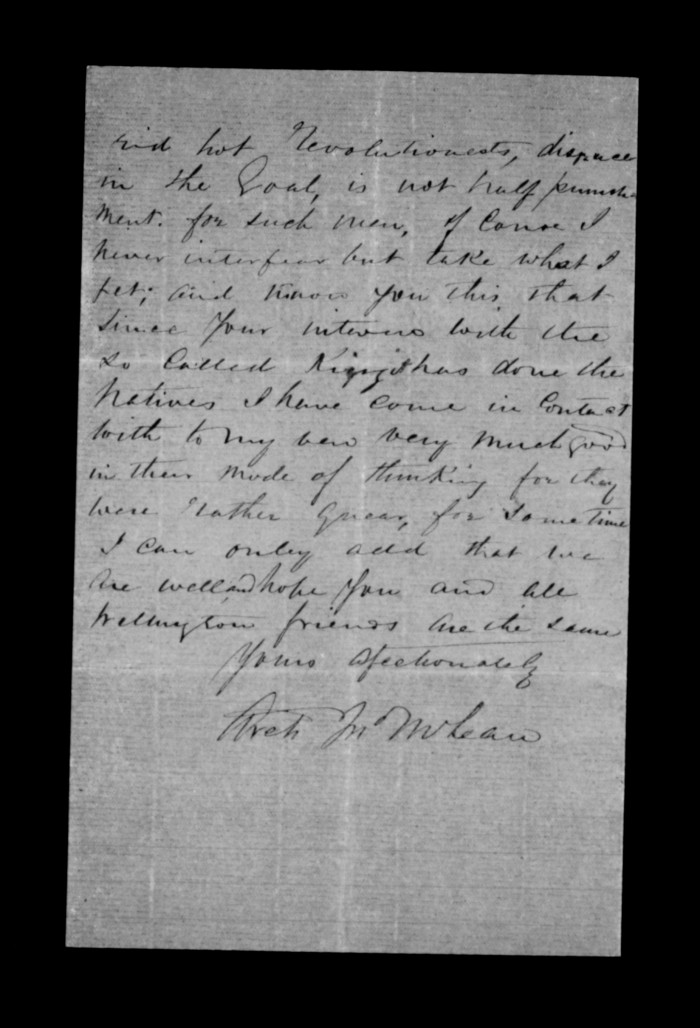 red hot Revolutionests, disgrace
in the Goal, is not half punish
ment. for such men, of Corse I
never interfear but take what I
get; and know you this that
since your interview with the
so Called King it has done the
Natives I have come in Contact
with to my vew very much good
in their mode of thinking for they
were Rather quear, for some time
I can onley add that we
are well and hope you and all
Wellington friends are the same
Yours afectionately
Arch Jn McLean